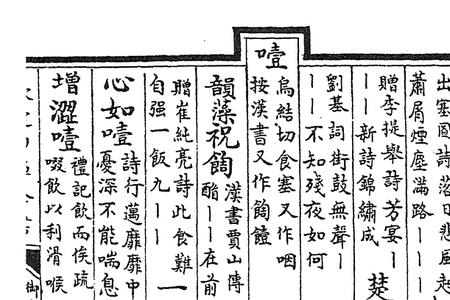 出塞圖詩落日悲風走
蕭屑煙塵滿路丨丨
贈李提舉詩芳宴丨
丨丨新詩錦繡成
劉基詞街鼓無聲丨
丨丨不如殘夜如何
噎
烏結切食塞又作咽
按漢書又作䭇饐
韻藻祝䭇
漢書賈山傳
酳丨丨在前
贈崔純亮詩此食難
自强一飯九丨丨
一
心如噎
詩行邁靡靡中
憂深不能喘息
增澀噎
禮記飲而俟疏
啜飲以利滑喉
御